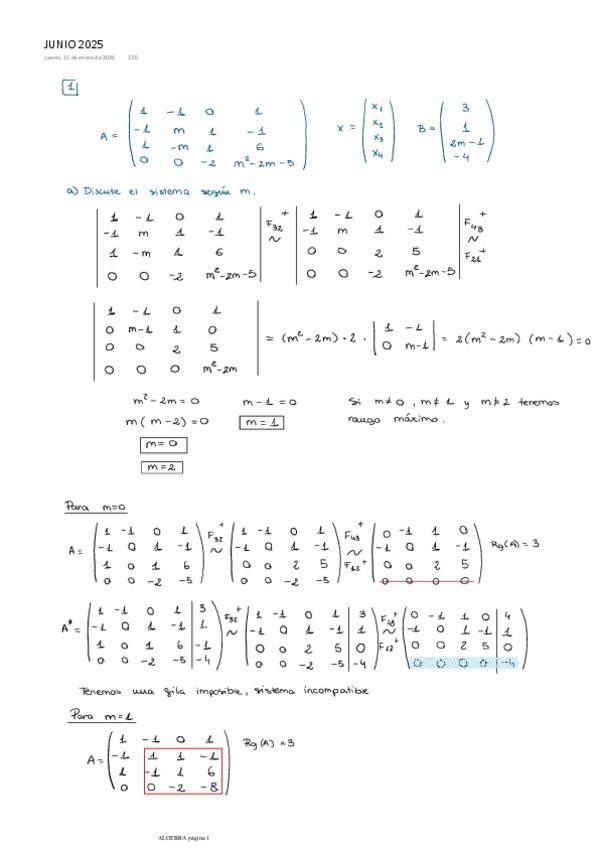 JUNIO 2025
jueves, 15 de enero de 2026 1:59
1
A = ( 1 -1 0 1 ; -1 m 1 -1 ; 1 -m 1 6 ; 0 0 -2 m²-2m-5 ) x = ( x₁ ; x₂ ; x₃ ; x₄ ) B = ( 3 ; 1 ; 2m-1 ; -4 )
a) Discute el sistema según m.
| 1 -1 0 1 ; -1 m 1 -1 ; 1 -m 1 6 ; 0 0 -2 m²-2m-5 | F₃₂⁺ ~ | 1 -1 0 1 ; -1 m 1 -1 ; 0 0 2 5 ; 0 0 -2 m²-2m-5 | F₄₃⁺ ~ F₂₁⁺
| 1 -1 0 1 ; 0 m-1 1 0 ; 0 0 2 5 ; 0 0 0 m²-2m | = (m²-2m)·2· | 1 -1 ; 0 m-1 | = 2(m²-2m) (m-1) = 0
m²-2m = 0 m-1 = 0 Si m≠0, m≠1 y m≠2 tenemos
m(m-2) = 0 m = 1 rango máximo.
m = 0
m = 2
Para m=0
A = ( 1 -1 0 1 ; -1 0 1 -1 ; 1 0 1 6 ; 0 0 -2 -5 ) F₃₂⁺ ~ ( 1 -1 0 1 ; -1 0 1 -1 ; 0 0 2 5 ; 0 0 -2 -5 ) F₄₃⁺ ~ F₁₂⁺ ( 0 -1 1 0 ; -1 0 1 -1 ; 0 0 2 5 ; 0 0 0 0 ) Rg(A) = 3
A* = ( 1 -1 0 1 | 3 ; -1 0 1 -1 | 1 ; 1 0 1 6 | -1 ; 0 0 -2 -5 | -4 ) F₃₂⁺ ~ ( 1 -1 0 1 | 3 ; -1 0 1 -1 | 1 ; 0 0 2 5 | 0 ; 0 0 -2 -5 | -4 ) F₄₃⁺ ~ F₁₂⁺ ( 0 -1 1 0 | 4 ; -1 0 1 -1 | 1 ; 0 0 2 5 | 0 ; 0 0 0 0 | -4 )
Tenemos una fila imposible, sistema incompatible
Para m=1
A = ( 1 -1 0 1 ; -1 1 1 -1 ; 1 -1 1 6 ; 0 0 -2 -8 ) Rg(A) = 3
ALGEBRA página 1